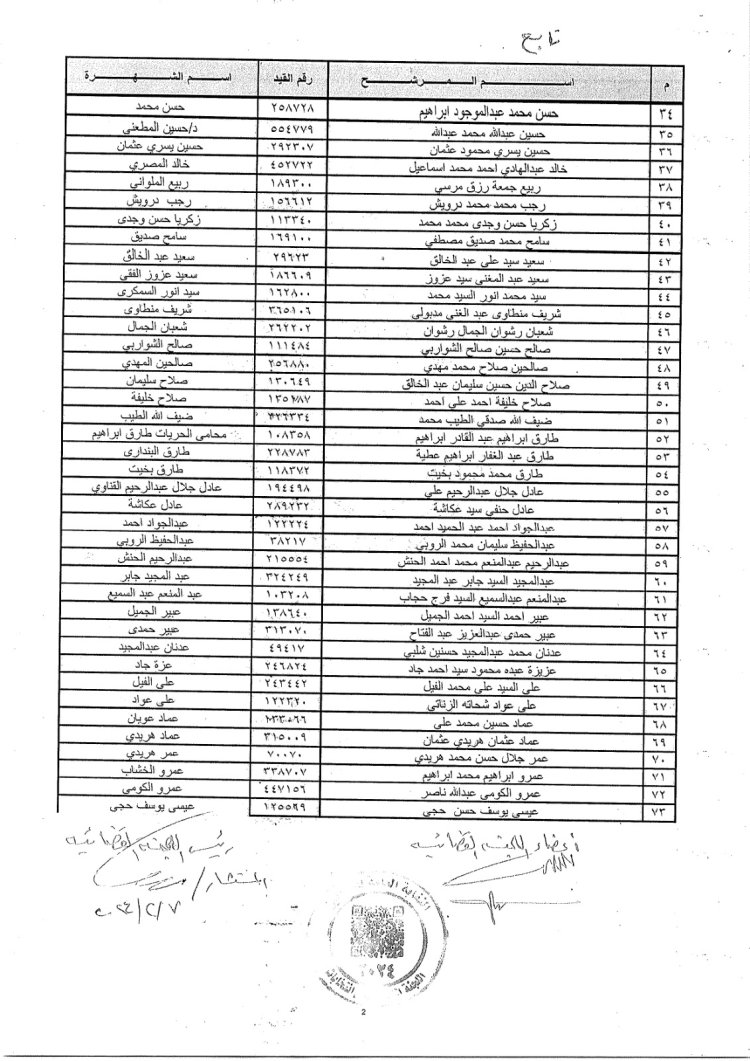 تابع
م اسم المرشح رقم القيد اسم الشهرة
٣٤ حسن محمد عبدالموجود ابراهيم ٢٥٨٧٢٨ حسن محمد
٣٥ حسين عبدالله محمد عبدالله ٥٥٤٧٧٩ د/حسين المطعني
٣٦ حسين يسري محمود عثمان ٢٩٢٣٠٧ حسين يسري عثمان
٣٧ خالد عبدالهادي احمد محمد اسماعيل ٤٥٢٧٢٢ خالد المصري
٣٨ ربيع جمعة رزق مرسي ١٨٩٣٠٠ ربيع الملواني
٣٩ رجب محمد محمد درويش ١٥٦٦١٢ رجب درويش
٤٠ زكريا حسن وجدى محمد محمد ١١٣٣٤٠ زكريا حسن وجدى
٤١ سامح محمد صديق مصطفي ١٦٩١٠٠ سامح صديق
٤٢ سعيد سيد على عبد الخالق ٢٩٦٢٣ سعيد عبد الخالق
٤٣ سعيد عبد المغنى سيد عزوز ١٨٦٦٠٩ سعيد عزوز الفقى
٤٤ سيد محمد انور السيد محمد ١٦٢٨٠٠ سيد انور السمكرى
٤٥ شريف منطاوى عبد الغني مدبولي ٣٦٥١٠٦ شريف منطاوى
٤٦ شعبان رشوان الجمال رشوان ٢٦٢٢٠٢ شعبان الجمال
٤٧ صالح حسين صالح الشواربي ١١١٤٨٤ صالح الشواربي
٤٨ صالحين صلاح محمد مهدي ٢٥٦٨٨٠ صالحين المهدي
٤٩ صلاح الدين حسين سليمان عبد الخالق ١٣٠٦٤٩ صلاح سليمان
٥٠ صلاح خليفة احمد علي احمد ١٣٥٧٨٧ صلاح خليفة
٥١ ضيف الله صدقي الطيب محمد ٤٢٦٣٣٤ ضيف الله الطيب
٥٢ طارق ابراهيم عبد القادر ابراهيم ١٠٨٣٥٨ محامى الحريات طارق ابراهيم
٥٣ طارق عبد الغفار ابراهيم عطية ٢٢٨٧٨٣ طارق البندارى
٥٤ طارق محمد محمود بخيت ١١٨٣٧٢ طارق بخيت
٥٥ عادل جلال عبدالرحيم علي ١٩٤٤٩٨ عادل جلال عبدالرحيم القناوي
٥٦ عادل حنفي سيد عكاشة ٢٨٩٢٣٢ عادل عكاشة
٥٧ عبدالجواد احمد عبد الحميد احمد ١٢٢٢٢٤ عبدالجواد احمد
٥٨ عبدالحفيظ سليمان محمد الروبي ٣٨٢١٧ عبدالحفيظ الروبي
٥٩ عبدالرحيم عبدالمنعم محمد احمد الحنش ٢١٥٥٥٤ عبدالرحيم الحنش
٦٠ عبدالمجيد السيد جابر عبد المجيد ٣٢٤٢٤٩ عبد المجيد جابر
٦١ عبدالمنعم عبدالسميع السيد فرج حجاب ١٠٣٢٠٨ عبد المنعم عبد السميع
٦٢ عبير احمد السيد احمد الجميل ١٣٨٦٤٠ عبير الجميل
٦٣ عبير حمدى عبدالعزيز عبد الفتاح ٣١٣٠٧٠ عبير حمدى
٦٤ عدنان محمد عبدالمجيد حسنين شلبي ٤٩٤١٧ عدنان عبدالمجيد
٦٥ عزيزة عبده محمود سيد احمد جاد ٢٤٦٨٢٤ عزة جاد
٦٦ على السيد على محمد الفيل ٢٤٣٤٤٢ على الفيل
٦٧ على عواد شحاته الزناتي ١٢٢٣٢٠ على عواد
٦٨ عماد حسين محمد على عماد عويان
٦٩ عماد عثمان هريدي عثمان ٣١٥٠٠٩ عماد هريدي
٧٠ عمر جلال حسن محمد هريدي ٧٠٠٧٠ عمر هريدي
٧١ عمرو ابراهيم محمد ابراهيم ٣٣٨٧٠٧ عمرو الخشاب
٧٢ عمرو الكومى عبدالله ناصر ٤٤٧١٥٦ عمرو الكومى
٧٣ عيسى يوسف حسن حجى ١٢٥٥٦٩ عيسى يوسف حجى
أعضاء اللجنة القضائية رئيس اللجنة القضائية
المستشار/
٢٠٢٤/٢/٧
٢٠٢٤
2